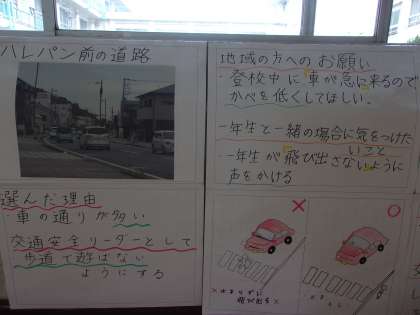 ハレパン前の道路
選んだ理由
・車の通りが多い
交通安全リーダーとして
歩道で遊ばない
ようにする
地域の方へのお願い
・登校中に車が急に来るので
かべを低くしてほしい。
一年生と一緒の場合に気をつけた
いこと
・一年生が飛び出さないように
声をかける
飛び出す